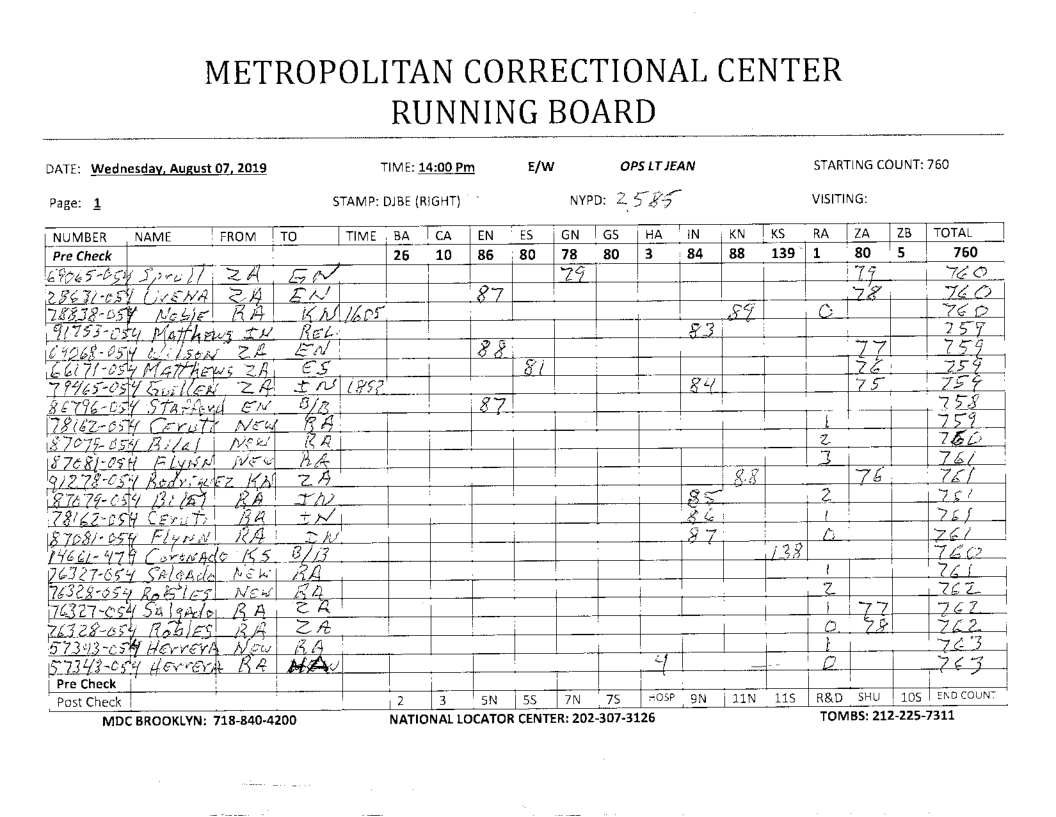 METROPOLITAN CORRECTIONAL CENTER
RUNNING BOARD
DATE: Wednesday, August 07, 2019 TIME: 14:00 Pm E/W OPS LT JEAN STARTING COUNT: 760
Page: 1 STAMP: DJBE (RIGHT) NYPD: 2585 VISITING:
NUMBER NAME FROM TO TIME BA CA EN ES GN GS HA IN KN KS RA ZA ZB TOTAL
Pre Check 26 10 86 80 78 80 3 84 88 139 1 80 5 760
69065-054 Sprull ZA GN 79 79 760
28631-054 UreNA ZA EN 87 78 760
78838-054 Noble RA KN 1605 89 0 760
91753-054 Matthews IN REL 83 759
69268-054 Wilson ZA EN 88 77 759
66171-054 Matthews ZA ES 81 76 759
79465-054 Guillen ZA IN 1852 84 75 759
86796-054 Stafford EN B/B 87 758
78162-054 Ceruti NEW RA 1 759
87079-054 Bilal NEW RA 2 760
87081-054 Flynn NEW RA 3 761
91278-054 Rodriguez KN ZA 88 76 761
87079-054 Bilal RA IN 85 2 761
78162-054 Ceruti RA IN 86 1 761
87081-054 Flynn RA IN 87 0 761
14661-479 Coronado KS B/B 138 760
76327-054 SAlgAdo NEW RA 1 761
76328-054 RoblES NEW RA 2 762
76327-054 SAlgAdo RA ZA 1 77 762
76328-054 Robles RA ZA 0 78 762
57343-054 HerrerA New RA 1 763
57343-054 HerrerA RA 4 0 763
Pre Check
Post Check 2 3 5N 5S 7N 7S HOSP 9N 11N 11S R&D SHU 10S END COUNT
MDC BROOKLYN: 718-840-4200 NATIONAL LOCATOR CENTER: 202-307-3126 TOMBS: 212-225-7311